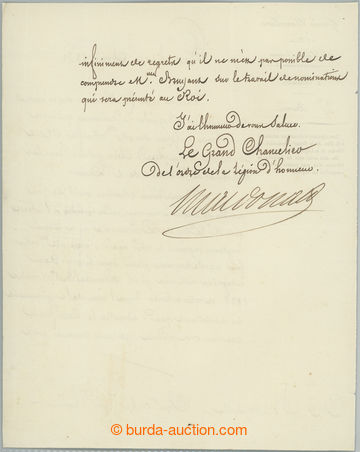 infiniment de regrets qu'il ne m'en pas possible de
comprendre M. Bruyant sur le travail de nominations
qui sera présenté au Roi.
J'ai l'honneur de vous saluer.
Le Grand Chancelier
de l'ordre de la Légion d'honneur.
Macdonald
© burda-auction.com